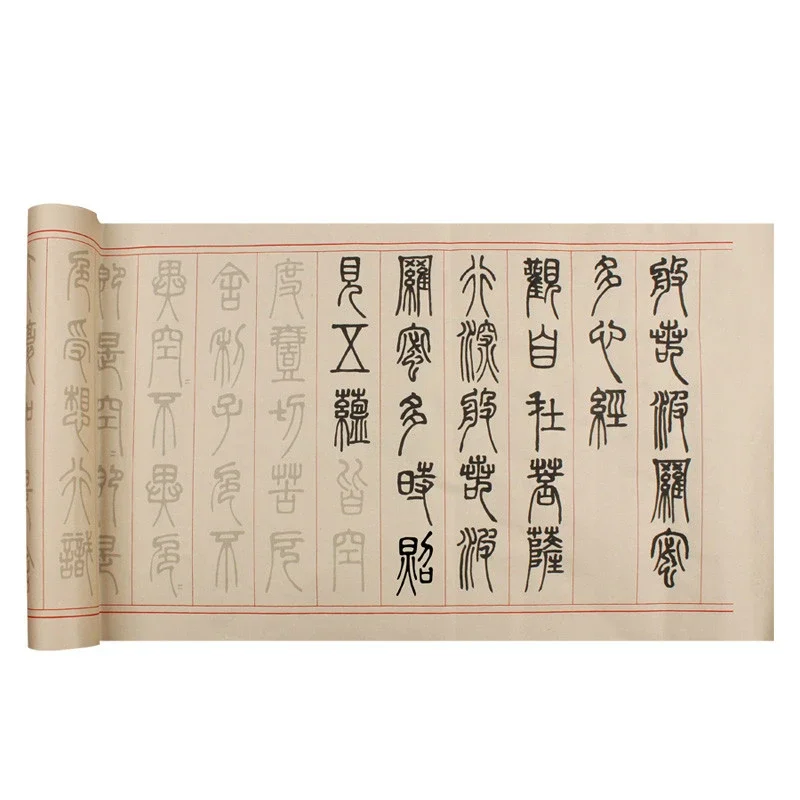 般若波羅蜜
多心經
觀自在菩薩
行深般若波
羅蜜多時照
見五蘊皆空
度一切苦厄
舍利子色不
異空不異色
即是空即是
色受想行識